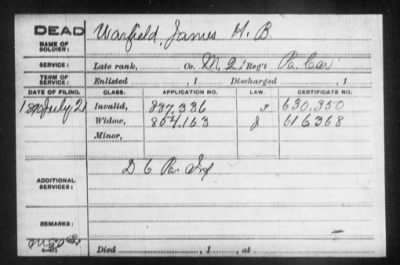 DEAD
NAME OF SOLDIER: Warfield, James H. B.
SERVICE: Late rank, Co. M. 21 Reg't Pa. Cav
TERM OF SERVICE: Enlisted , 1 Discharged , 1
DATE OF FILING. CLASS. APPLICATION NO. LAW. CERTIFICATE NO.
1890 July 21 Invalid, 837,336 J 630,350
Widow, 854,163 J 616368
Minor,
ADDITIONAL SERVICES: D 6 Pa. Inf
REMARKS:
Died , 1 , at